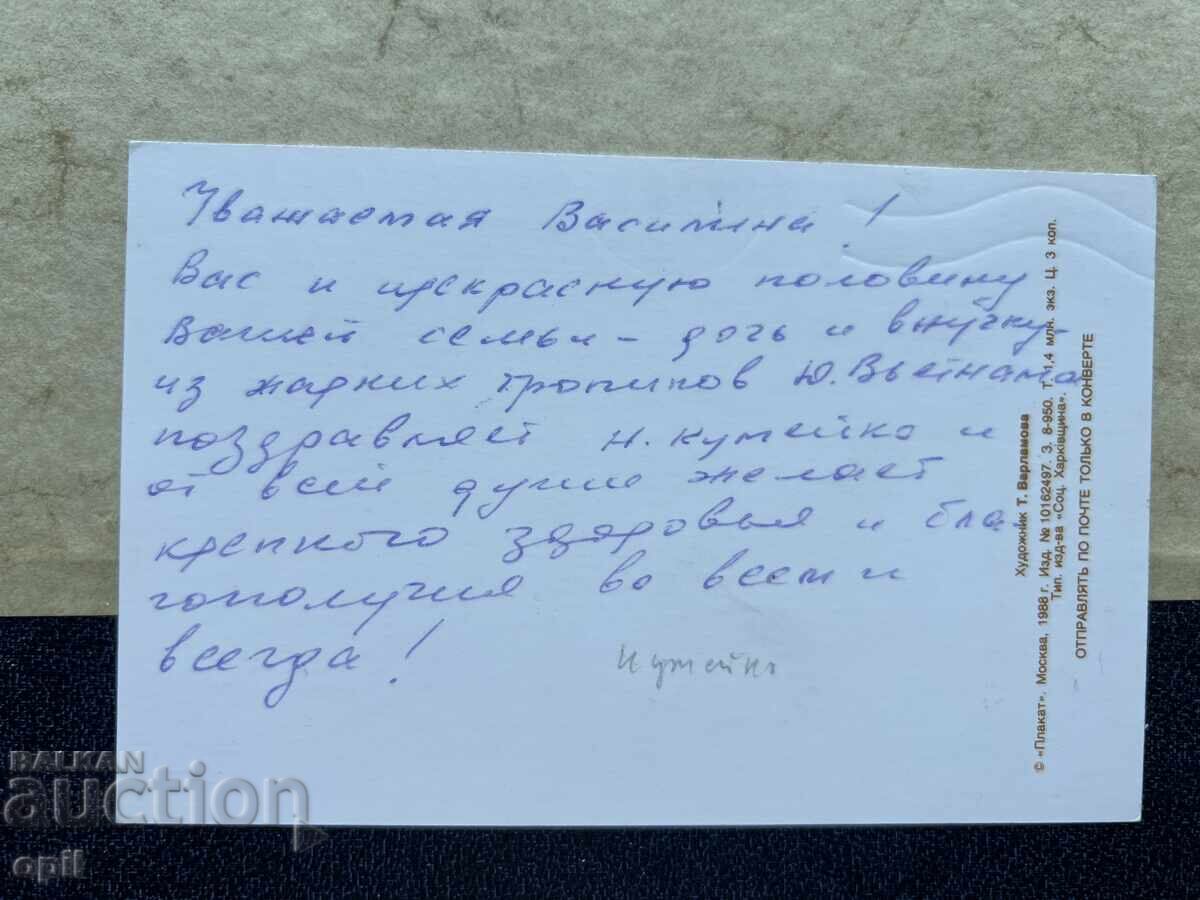 Уважаемая Васитна!
Вас и прекрасную половину
Вашей семьи - дочь и внучку
из жарких тропиков Ю. Вьетнама
поздравляет Н. Кумейко и
от всей души желает
крепкого здоровья и бла
гополучия во всем и
всегда!
Кумейко
© «Плакат». Москва, 1988 г. Изд. № 10162497. З. 8-950. Т. 1,4 млн. экз. Ц. 3 коп.
Художник Т. Варламова
Тип. изд-ва «Соц. Харківщина».
ОТПРАВЛЯТЬ ПО ПОЧТЕ ТОЛЬКО В КОНВЕРТЕ
BALKAN
auction
opil